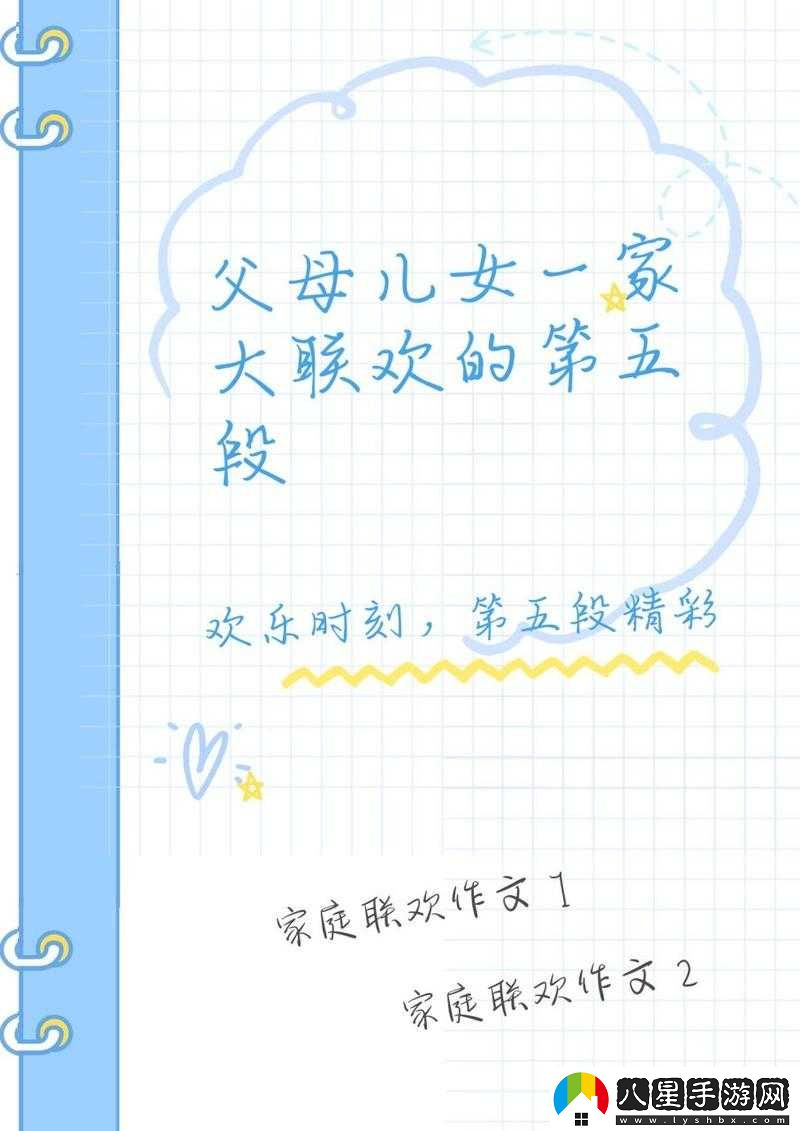 父母儿女一家
大联欢的第五
段
欢乐时刻，第五段精彩
家庭联欢作文1
家庭联欢作文2
八星手游网
www.lyshbx.com